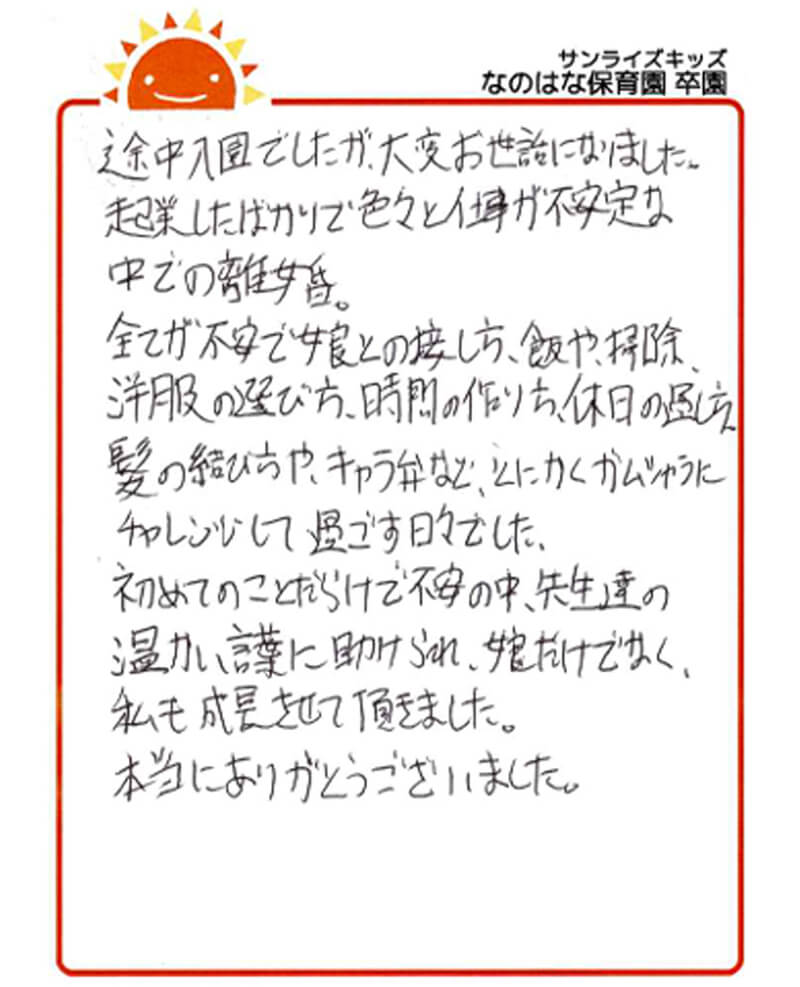 サンライズキッズ
なのはな保育園 卒園
途中入園でしたが、大変お世話になりました。
起業したばかりで色々と仕事が不安定な
中での離婚。
全てが不安で娘との接し方、飯や、掃除、
洋服の選び方、時間の作り方、休日の過し方
髪の結び方や、キャラ弁など、とにかくがむしゃらに
チャレンジして過ごす日々でした、
初めてのことだらけで不安の中、先生達の
温かい言葉に助けられ、娘だけでなく、
私も成長させて頂きました。
本当にありがとうございました。